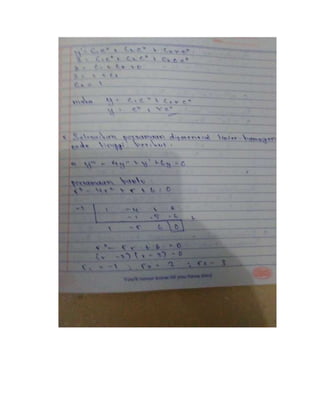 y' = C₁e⁰ + C₂e⁰ + C₂xe⁰
2 = C₁e⁰ + C₂e⁰ + C₂0e⁰
2 = C₁ + C₂ + 0
2 = 1 + C₂
C₂ = 1
maka y = C₁eˣ + C₂xeˣ
y = eˣ + xeˣ
Selesaikan persamaan diferensial linier homogen
orde tinggi berikut.
a. y''' - 4y'' + y' + 6y = 0
persamaan bantu
r³ - 4r² + r + 6 = 0
-1 | 1 -4 1 6
-1 5 -6 +
1 -5 6 0
r² - 5r + 6 = 0
(r - 2)(r - 3) = 0
r₁ = -1 ; r₂ = 2 ; r₃ = 3
You'll never know till you have tried